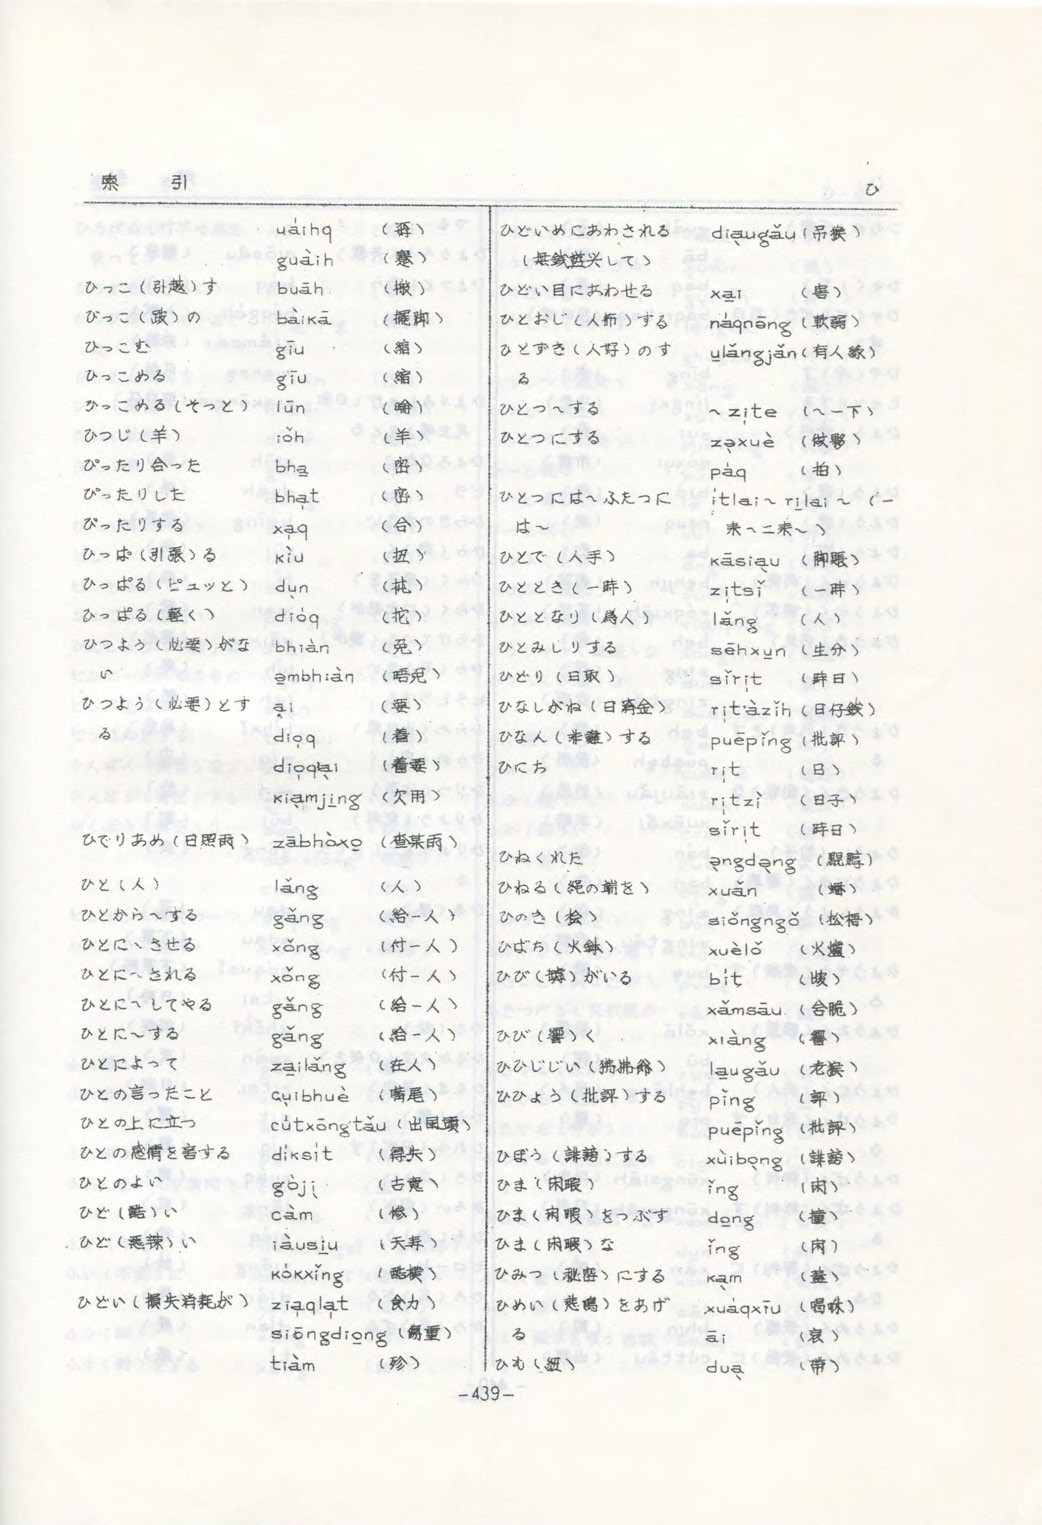 索 引
ひ
uȧihq
guȧih (蹇)
ひっこ(引越)す buāh (搬)
びっこ(跛)の bàiкā (擺脚)
ひっこむ gīu (縮)
ひっこめる gīu (縮)
ひっこめる(そっと) lūn
ひつじ(羊) iǒh (羊)
ぴったり合った bha̱ (密)
ぴったりした bhạt (密)
ぴったりする xạq (合)
ひっぱ(引張)る кìu (扭)
ひっぱる(ピュッと) dụn
ひっぱる(軽く) dióq
ひつよう(必要)がな bhiàn (免)
い ə̣mbhiàn (唔免)
ひつよう(必要)とす ại (要)
る diọq (着)
diọqlại (着要)
кiạmji̱ng (欠用)
ひでりあめ(日照雨) zābhòxo̱ (查某雨)
ひと(人) lǎng (人)
ひとから〜する gǎng (给一人)
ひとに〜させる xǒng (付一人)
ひとに〜される xǒng (付一人)
ひとに〜してやる gǎng (给一人)
ひとに〜する gǎng (给一人)
ひとによって zạilǎng (在人)
ひとの言ったこと cụibhuè (嘴尾)
ひとの上に立つ cútxōngtǎu (出風頭)
ひとの感情を害する diкsit (得失)
ひとのよい gòji̱ (古意)
ひど(酷)い càm (惨)
ひど(悪辣)い iàusi̱u (夭寿)
кòкxǐng (酷横)
ひどい(損失消耗が) ziạqlạt (食力)
siōngdio̱ng (傷重)
tiàm
ひどいめにあわされる diạugǎu (吊猴)
して)
ひどい目にあわせる xại (害)
ひとおじ(人怖)する náqnāng (軟弱)
ひとずき(人好)のす u̱lǎngjǎn (有人緣)
る
ひとつ〜する 〜zịte (〜一下)
ひとつにする zə̣xuè (做夥)
páq (拍)
ひとつには〜ふたつに ịtlai〜ri̱lai〜 (一
は〜 来〜二来〜)
ひとで(人手) кāsiạu (脚賬)
ひととき(一時) zịtsǐ (一時)
ひととなり(為人) lǎng (人)
ひとみしりする sēhxu̱n (生分)
ひどり(日取) sǐrịt (時日)
ひなしがね(日済金) rịt'àzǐh (日仔錢)
ひなん(非難)する puēpǐng (批評)
ひにち rịt (日)
rịtzì (日子)
sǐrịt (時日)
ひねくれた ə̣ngdə̣ng
ひねる(縄の端を) xuǎn
ひのき(桧) siǒngngǒ (松梧)
ひばち(火鉢) xuèlǒ (火爐)
ひび(罅)がいる bịt
xǎmsāu
ひび(響)く xiàng (響)
ひひじじい(狒狒爺) lạugǎu (老猴)
ひひょう(批評)する pǐng (評)
puēpǐng (批評)
ひぼう(誹謗)する xùibọng (誹謗)
ひま(閑暇) ǐng (閑)
ひま(閑暇)をつぶす do̱ng (撞)
ひま(閑暇)な ǐng (閑)
ひみつ(秘密)にする кạm (蓋)
ひめい(悲鳴)をあげ xuáqxīu (喝咻)
る āi (哀)
ひも(紐) duạ (帶)
-439-